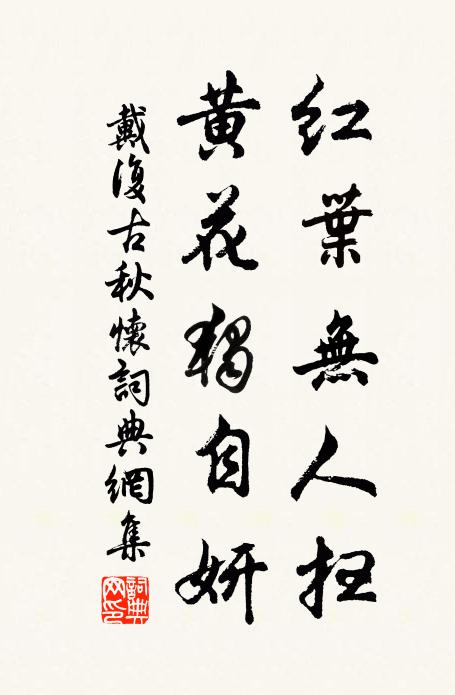 紅葉無人扫
黄花獨自妍
戴復古秋懷詞典網集
詞典网印